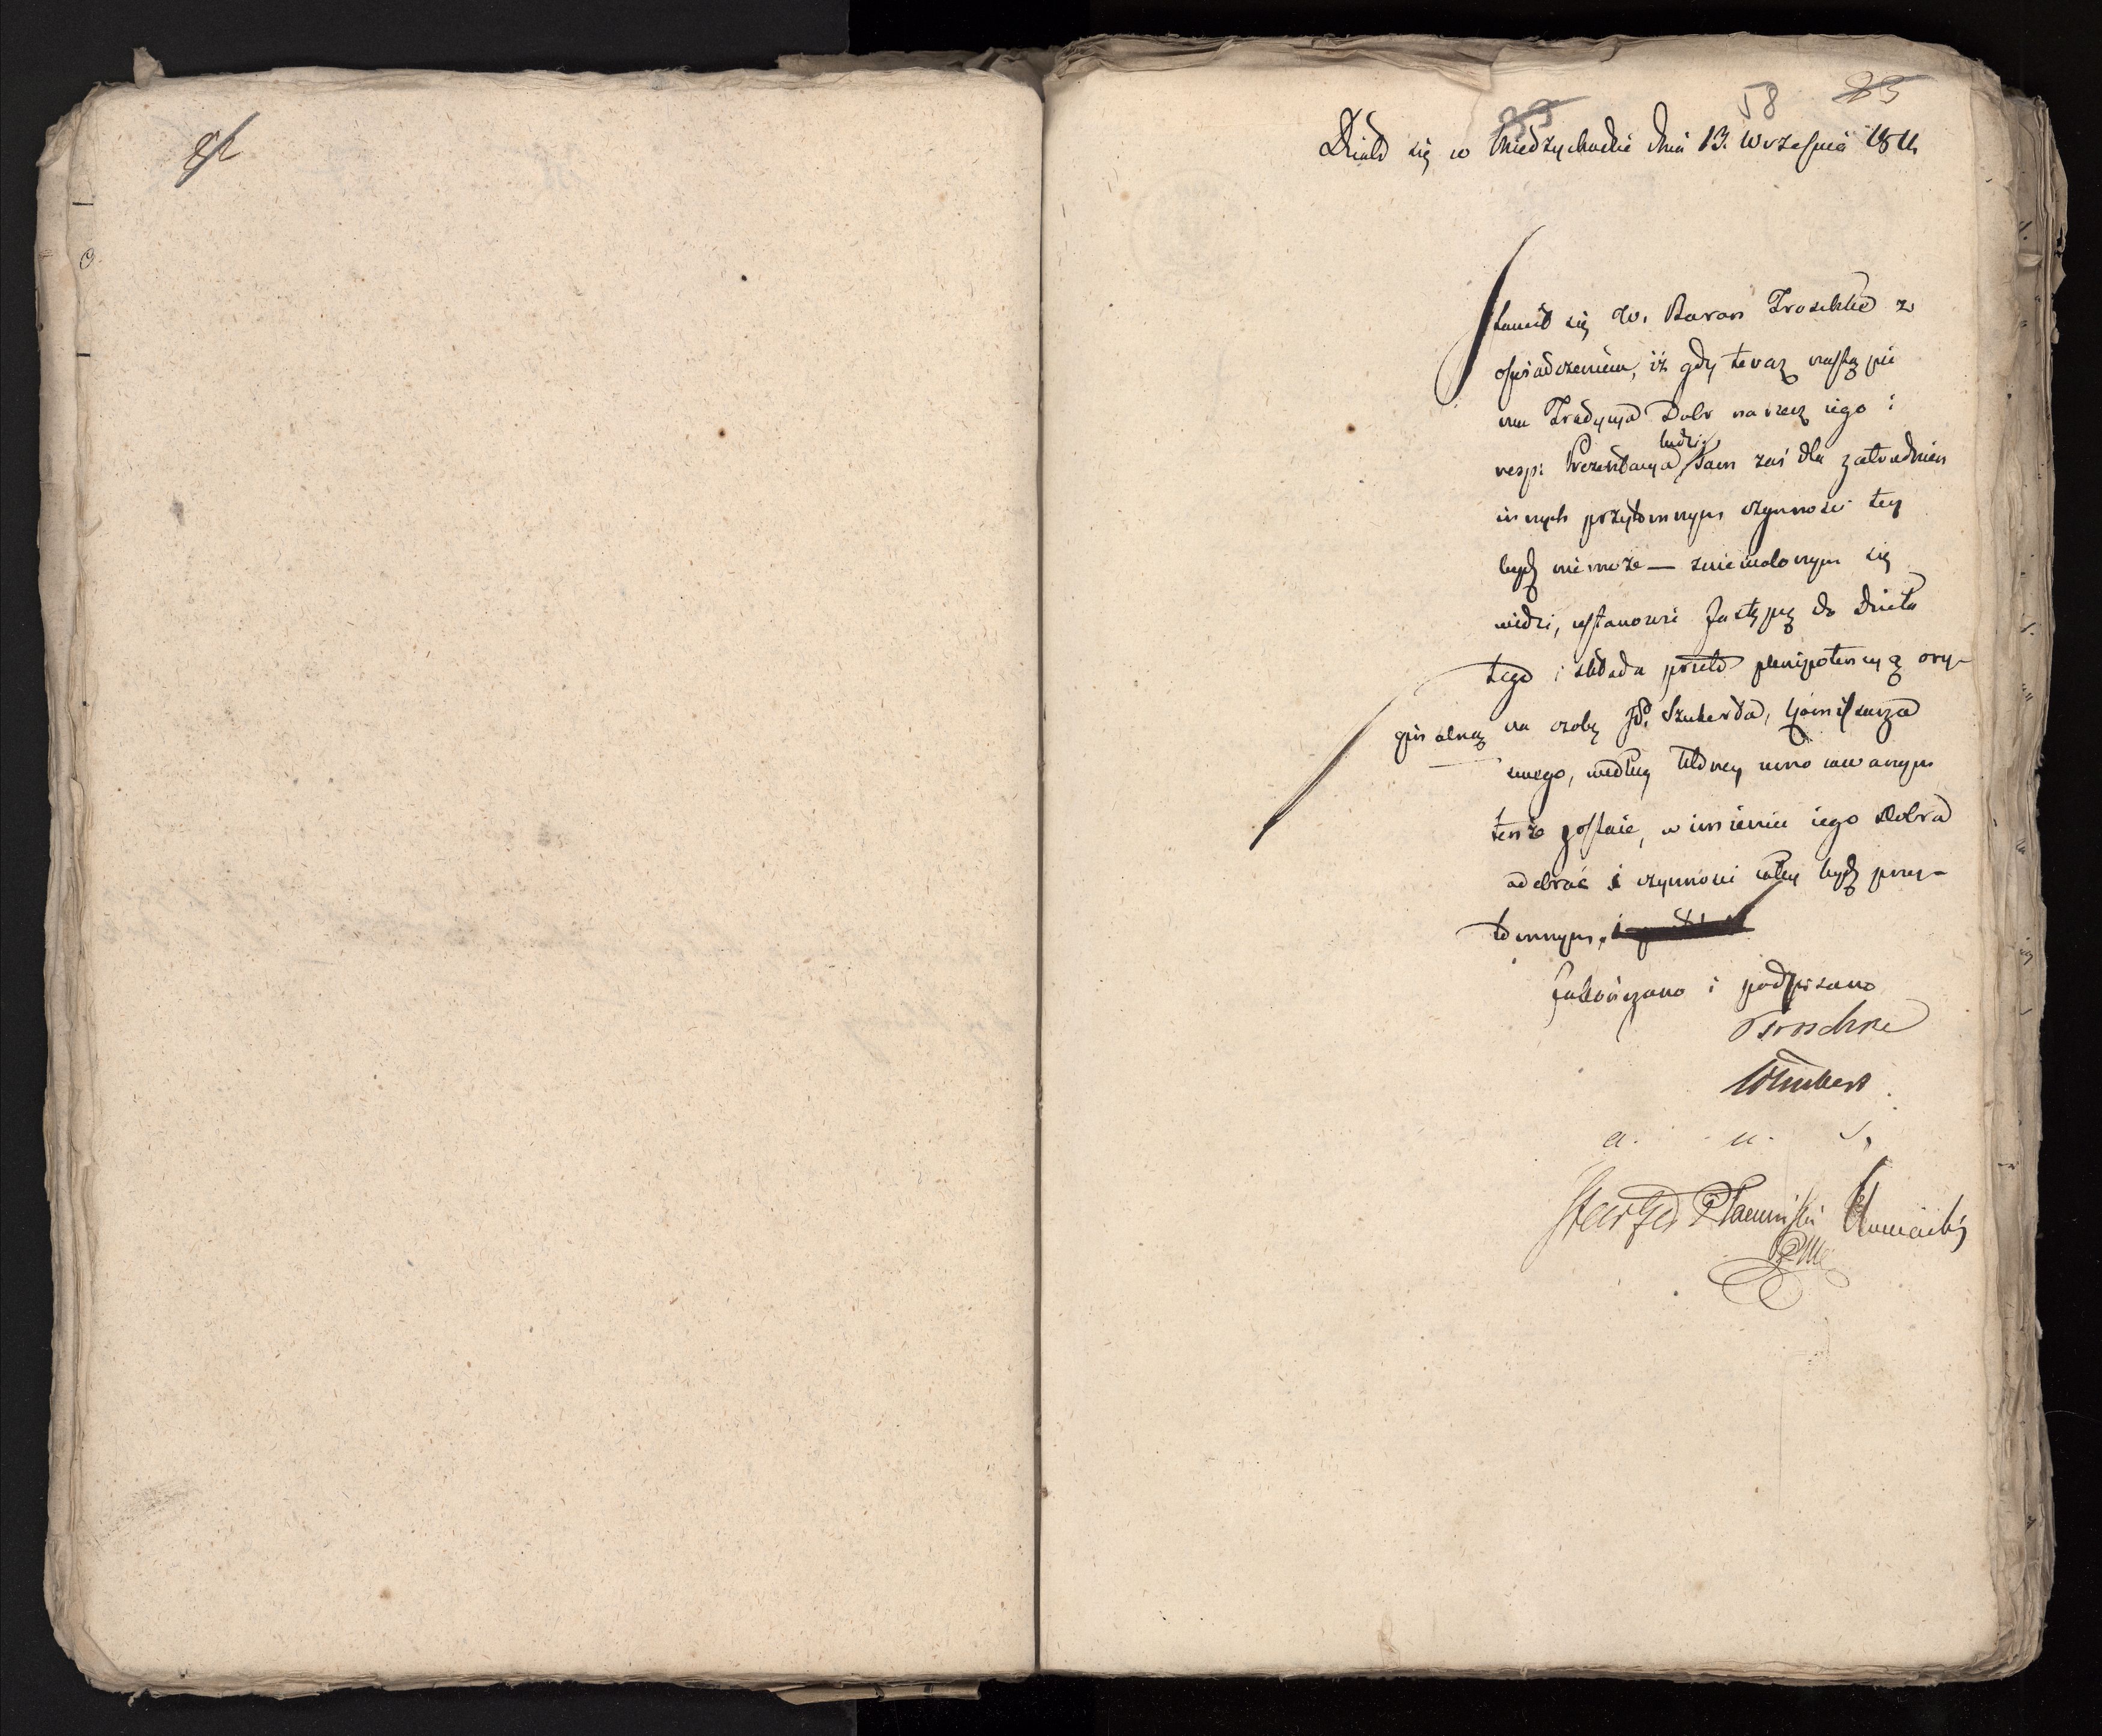 58
Działo się w Międzychodzie dnia 13. Września 1811.
Stawił się W. Baron Troschke z
oświadczeniem, iż gdy teraz nastąpić
ma Tradycya Dobr na rzecz iego i
resp: Prezentacya ludzi, sam zaś dla zatrudnień
innych przytomnym czynności tey
bydź nie może — zniewolonym się
widzi, ustanowić Zastępcę do dzieła
tego i składa przeto plenipotencyą ory-
ginalną na osobę JP. Szuberta, Kommissarza
swego, według któréy umocowanym
tenże zostaie, w imieniu iego Dobra
odebrać i czynności całey bydź przy-
tomnym.
Zakończono i podpisano
Troschke
Schubert
a. u. s.